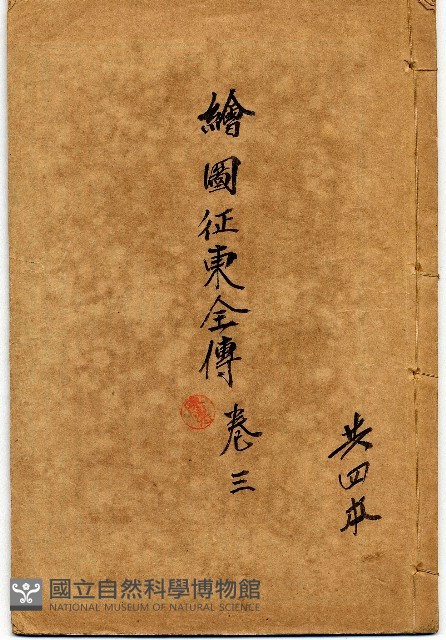 繪圖征東全傳 卷三
共四本
國立自然科學博物館
NATIONAL MUSEUM OF NATURAL SCIENCE